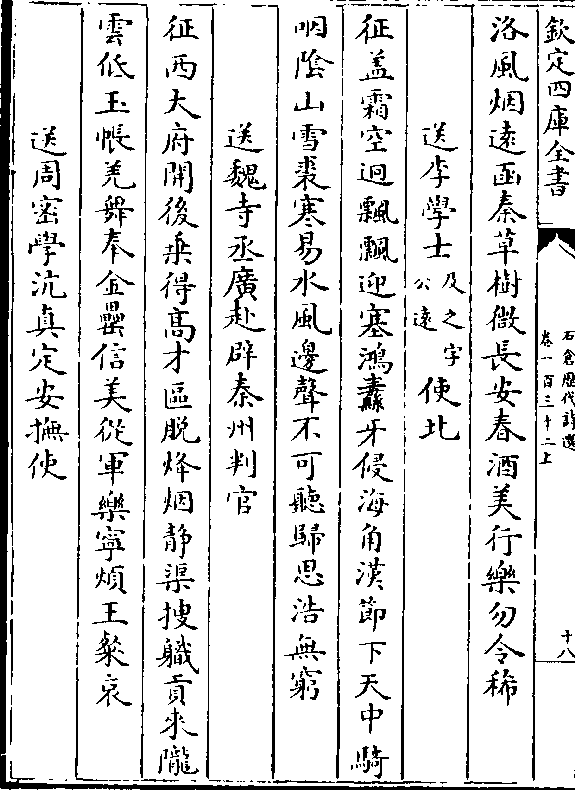 欽定四庫全書
石倉歴代詩選
卷一百三十二上
十八
洛風烟遠函秦草樹微長安春酒美行樂勿令稀
送李學士及之字公遠使北
征蓋霜空迥飄飄迎塞鴻纛牙侵海角漢節下天中騎
咽陰山雪裘寒易水風邊聲不可聽歸思浩無窮
送魏寺丞廣赴辟秦州判官
征西大府開後乗得髙才區脱烽烟静渠搜軄貢来隴
雲低玉帳羌舞奉金罍信美從軍樂寧煩王粲哀
送周密學沆真定安撫使